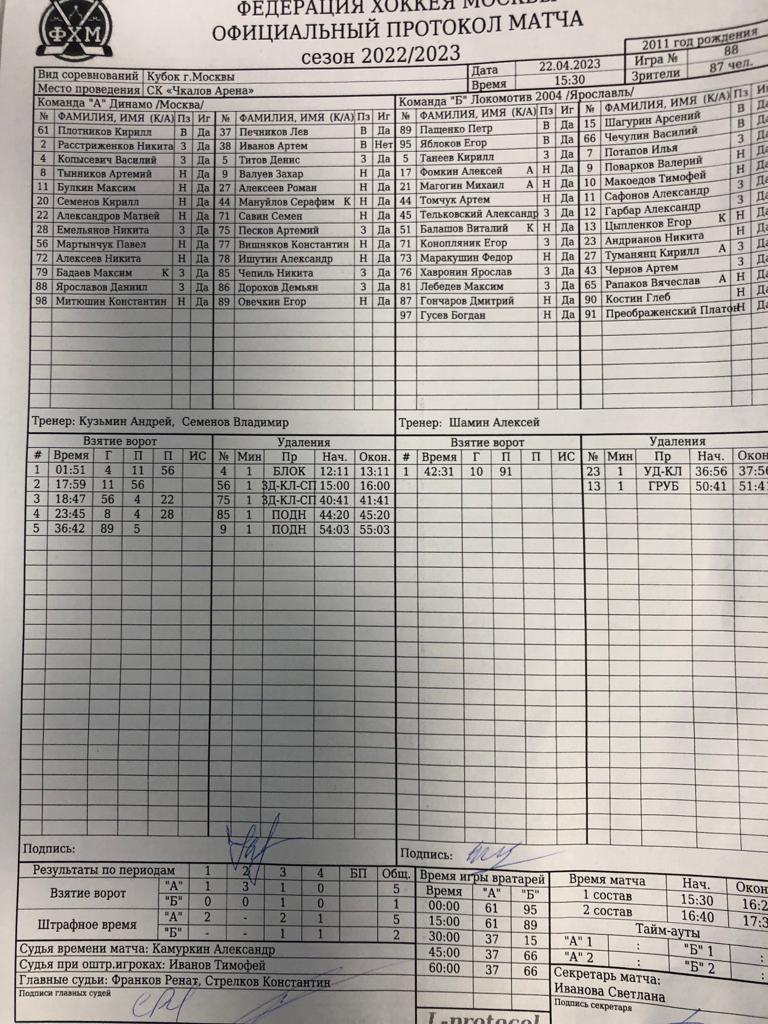 ФХМ
ФЕДЕРАЦИЯ ХОККЕЯ МОСКВЫ
ОФИЦИАЛЬНЫЙ ПРОТОКОЛ МАТЧА
сезон 2022/2023
2011 год рождения
Вид соревнований Кубок г.Москвы Дата 22.04.2023 Игра № 88
Место проведения СК «Чкалов Арена» Время 15:30 Зрители 87 чел.
Команда "А" Динамо /Москва/ Команда "Б" Локомотив 2004 /Ярославль/
№ ФАМИЛИЯ, ИМЯ (К/А) Пз Иг № ФАМИЛИЯ, ИМЯ (К/А) Пз Иг № ФАМИЛИЯ, ИМЯ (К/А) Пз Иг № ФАМИЛИЯ, ИМЯ (К/А) Пз
61 Плотников Кирилл В Да 37 Печников Лев В Да 89 Пащенко Петр В Да 15 Шагурин Арсений В
2 Расстриженков Никита З Да 38 Иванов Артем В Нет 95 Яблоков Егор В Да 66 Чечулин Василий В
4 Копысевич Василий З Да 5 Титов Денис З Да 5 Танеев Кирилл З Да 7 Потапов Илья З
8 Тынников Артемий Н Да 9 Валуев Захар Н Да 17 Фомкин Алексей А Н Да 9 Поварков Валерий Н
11 Булкин Максим Н Да 27 Алексеев Роман Н Да 21 Магогин Михаил А Н Да 10 Макоедов Тимофей Н
20 Семенов Кирилл Н Да 44 Мануйлов Серафим К Н Да 44 Томчук Артем Н Да 11 Сафонов Александр З
22 Александров Матвей Н Да 71 Савин Семен Н Да 45 Тельковский Александр З Да 12 Гарбар Александр З
28 Емельянов Никита З Да 75 Песков Артемий З Да 51 Балашов Виталий К Н Да 13 Цыпленков Егор К Н
56 Мартынчук Павел Н Да 77 Вишняков Константин Н Да 71 Конопляник Егор З Да 23 Андрианов Никита Н
72 Алексеев Никита Н Да 78 Ишутин Александр Н Да 73 Маракушин Федор Н Да 27 Туманянц Кирилл А З
79 Бадаев Максим К З Да 85 Чепиль Никита З Да 76 Хавронин Ярослав З Да 43 Чернов Артем З
88 Ярославов Даниил З Да 86 Дорохов Демьян З Да 81 Лебедев Максим З Да 65 Рапаков Вячеслав А Н
98 Митюшин Константин Н Да 89 Овечкин Егор Н Да 87 Гончаров Дмитрий Н Да 90 Костин Глеб Н
97 Гусев Богдан Н Да 91 Преображенский Платон Н
Тренер: Кузьмин Андрей, Семенов Владимир Тренер: Шамин Алексей
Взятие ворот Удаления Взятие ворот Удаления
# Время Г П П ИС № Мин Пр Нач. Окон. # Время Г П П ИС № Мин Пр Нач. Окон
1 01:51 4 11 56 4 1 БЛОК 12:11 13:11 1 42:31 10 91 23 1 УД-КЛ 36:56 37:56
2 17:59 11 56 56 1 ЗД-КЛ-СП 15:00 16:00 13 1 ГРУБ 50:41 51:4
3 18:47 56 4 22 75 1 ЗД-КЛ-СП 40:41 41:41
4 23:45 8 4 28 85 1 ПОДН 44:20 45:20
5 36:42 89 5 9 1 ПОДН 54:03 55:03
Подпись: Подпись:
Результаты по периодам 1 2 3 4 БП Общ.
Взятие ворот "А" 1 3 1 0 5
"Б" 0 0 1 0 1
Штрафное время "А" 2 - 2 1 5
"Б" - - 1 1 2
Судья времени матча: Камуркин Александр
Судья при оштр.игроках: Иванов Тимофей
Главные судьи: Франков Ренат, Стрелков Константин
Подписи главных судей
Время игры вратарей
Время "А" "Б"
00:00 61 95
15:00 61 89
30:00 37 15
45:00 37 66
60:00 37 66
L-protocol
Время матча Нач. Окон
1 состав 15:30 16:2
2 состав 16:40 17:3
Тайм-ауты
"А" 1 : "Б" 1 :
"А" 2 : "Б" 2 :
Секретарь матча:
Иванова Светлана
Подпись секретаря